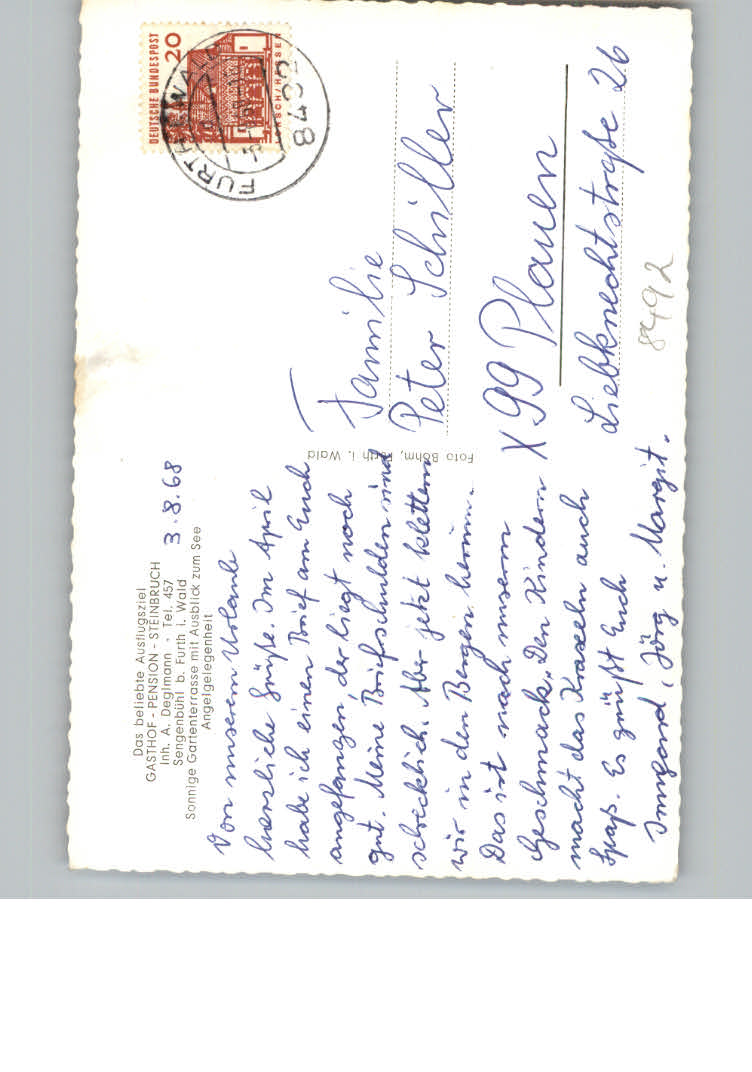 Das beliebte Ausflugsziel
GASTHOF - PENSION - STEINBRUCH
Inh. A. Deglmann · Tel. 457
Sengenbühl b. Furth i. Wald
Sonnige Gartenterrasse mit Ausblick zum See
Angelgelegenheit
3.8.68
Von unserem Urlaub
herzliche Grüße. Im April
habe ich einen Brief an Euch
angefangen, der liegt noch
gut. Meine Briefschulden sind
schrecklich. Aber jetzt klettern
wir in den Bergen herum.
Das ist nach unserm
Geschmack. Den Kindern
macht das Kraxeln auch
Spaß. Es grüßt Euch
Irmgard, Jörg u. Margit.
Foto Böhm, Furth i. Wald
DEUTSCHE BUNDESPOST
20
LORSCH/HESSEN
8492
FURTH I WALD
Familie
Peter Schiller
X 99 Plauen
Liebknechtstraße 26
8492